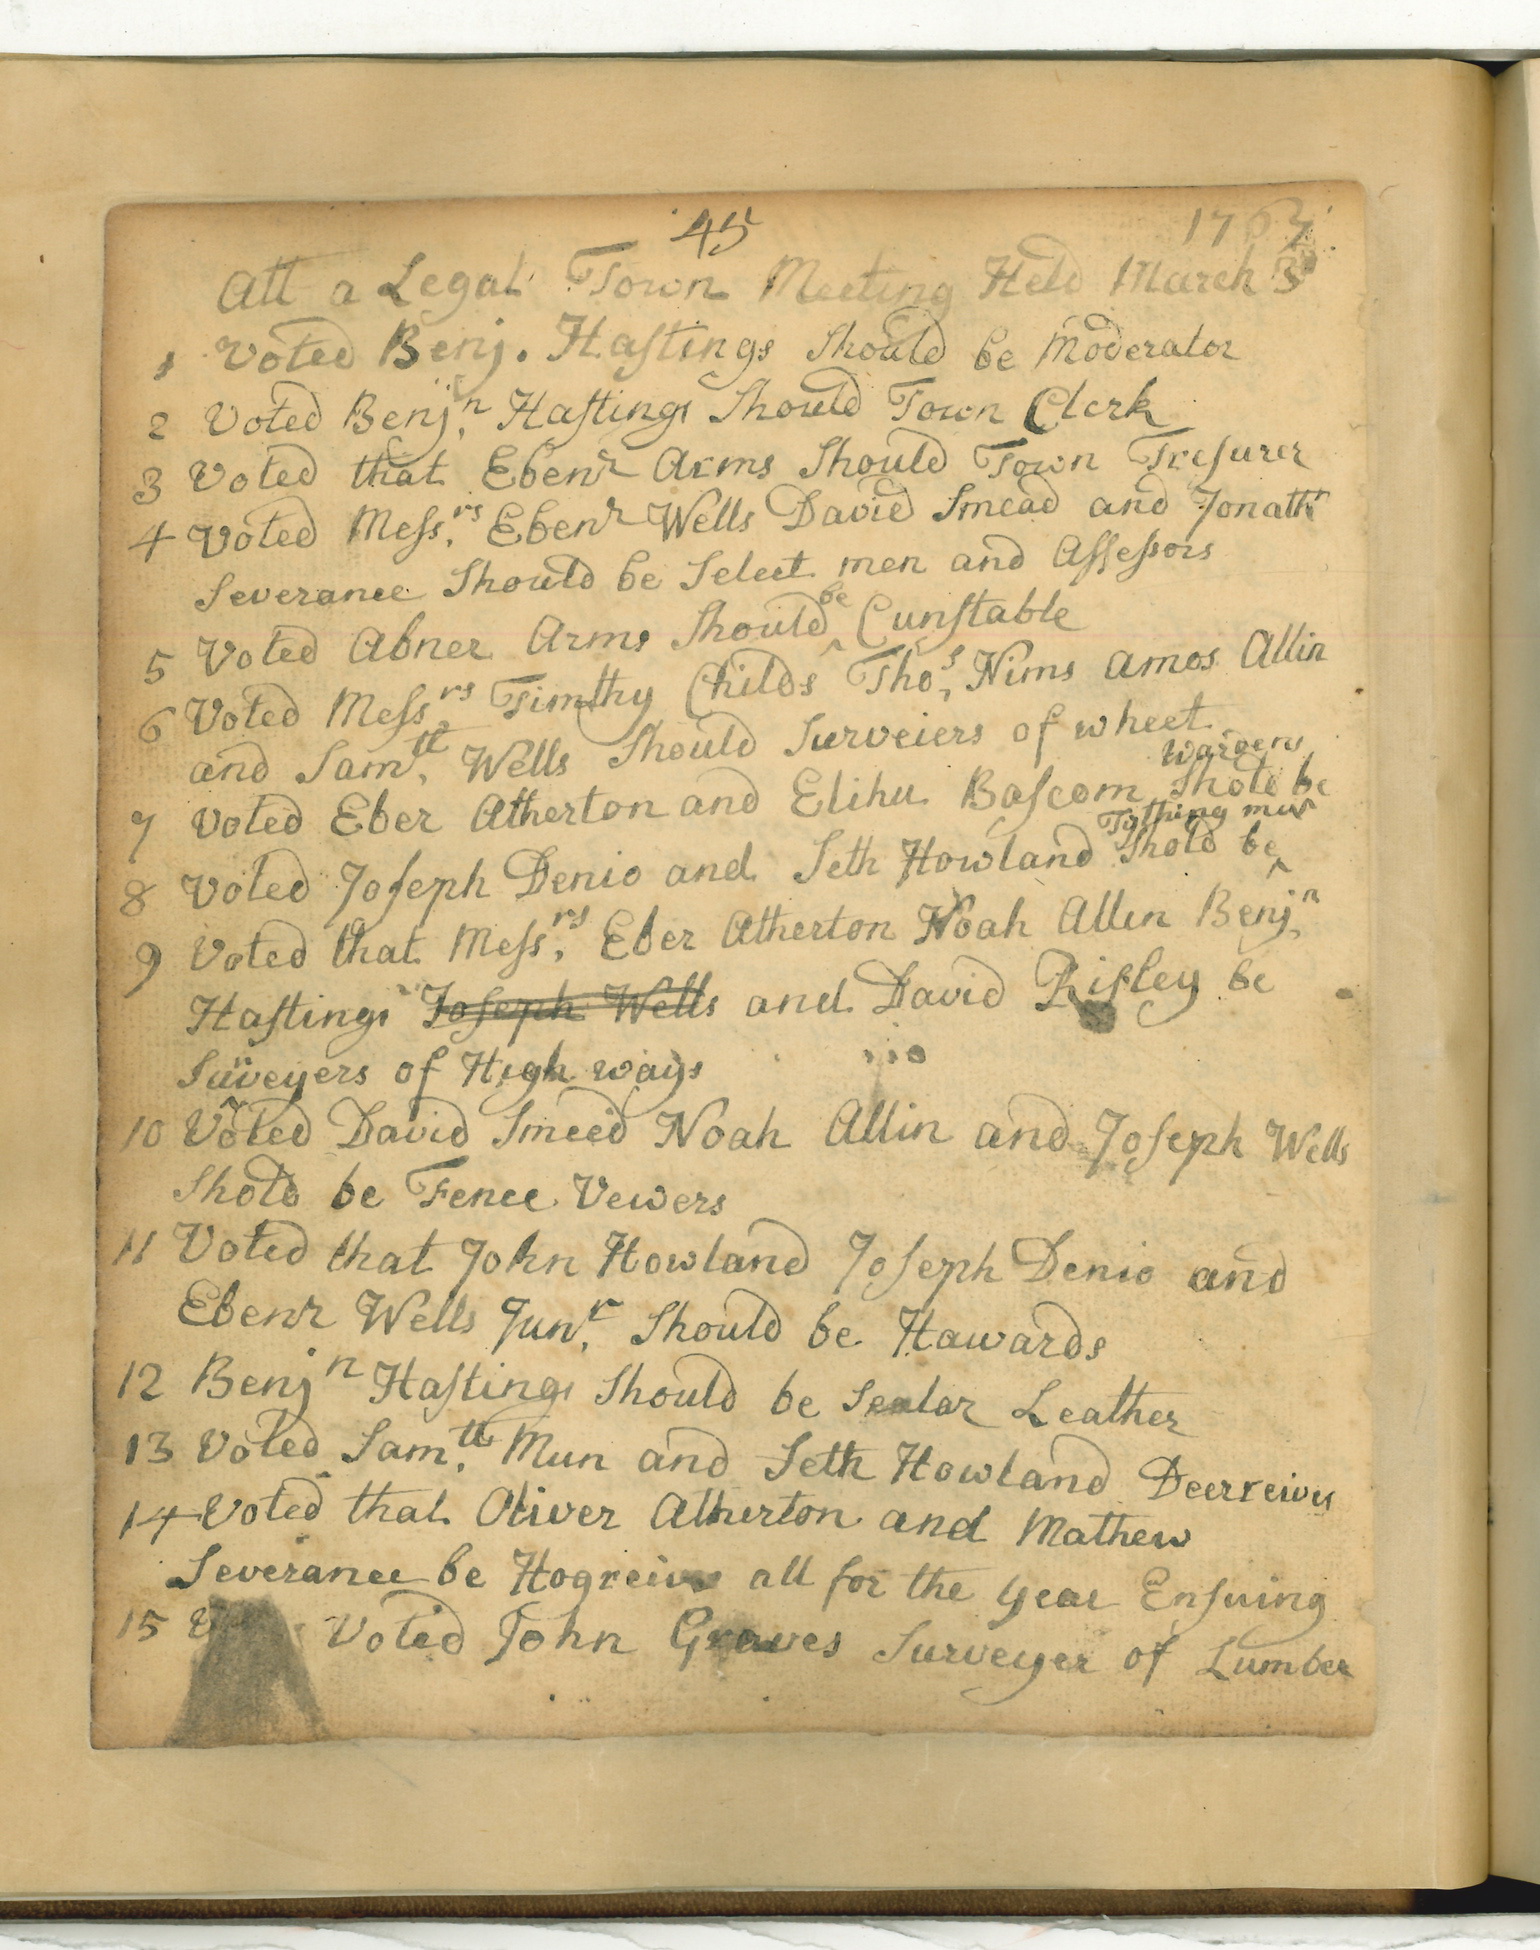 45 1767
Att a Legal Town Meeting Held March 3
1 Voted Benj. Hastings Should be Moderator
2 Voted Benjn. Hastings Should Town Clerk
3 Voted that Ebenr Arms Should Town Tresurer
4 Voted Messrs. Ebenr Wells David Smead and Jonathn
Severance Should be Select men and Assessors
5 Voted Abner Arms Should be Cunstable
6 Voted Messrs. Timthy Childs Thos. Nims Amos Allin
and Samll. Wells Should Surveiers of wheet
7 Voted Eber Atherton and Elihu Bascom Shold be Wardens
8 Voted Joseph Denio and Seth Howland Shold be Tythingmen
9 Voted that Messrs. Eber Atherton Noah Allin Benjn.
Hastings Joseph Wells and David Risley be
Suveyers of High ways
10 Voted David Smeed Noah Allin and Joseph Wells
Shold be Fence Vewers
11 Voted that John Howland Joseph Denio and
Ebenr Wells Junr. Should be Hawards
12 Benjn Hastings Should be Sealar Leather
13 Voted Samll. Mun and Seth Howland Deerreives
14 Voted that Oliver Atherton and Mathew
Severance be Hogreives all for the Year Ensuing
15 Voted John Graves Surveyer of Lumber